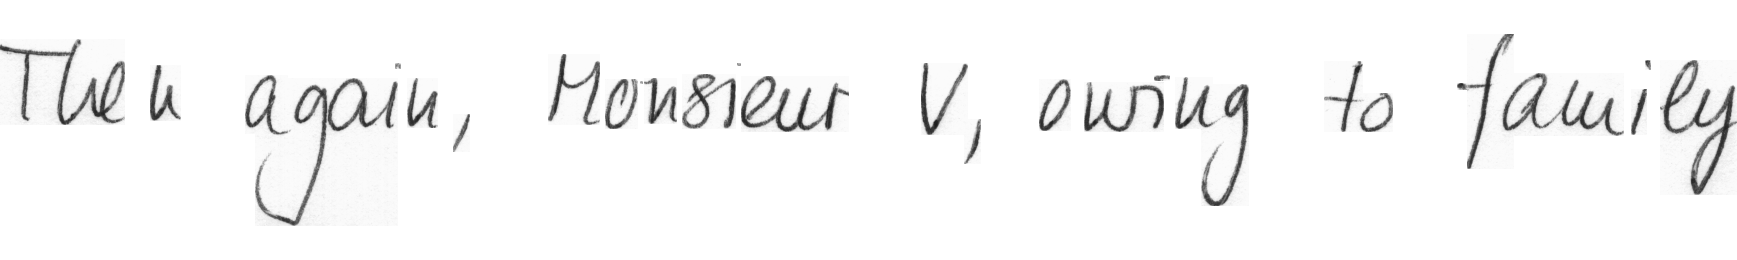 Then again, Monsieur V, owing to family